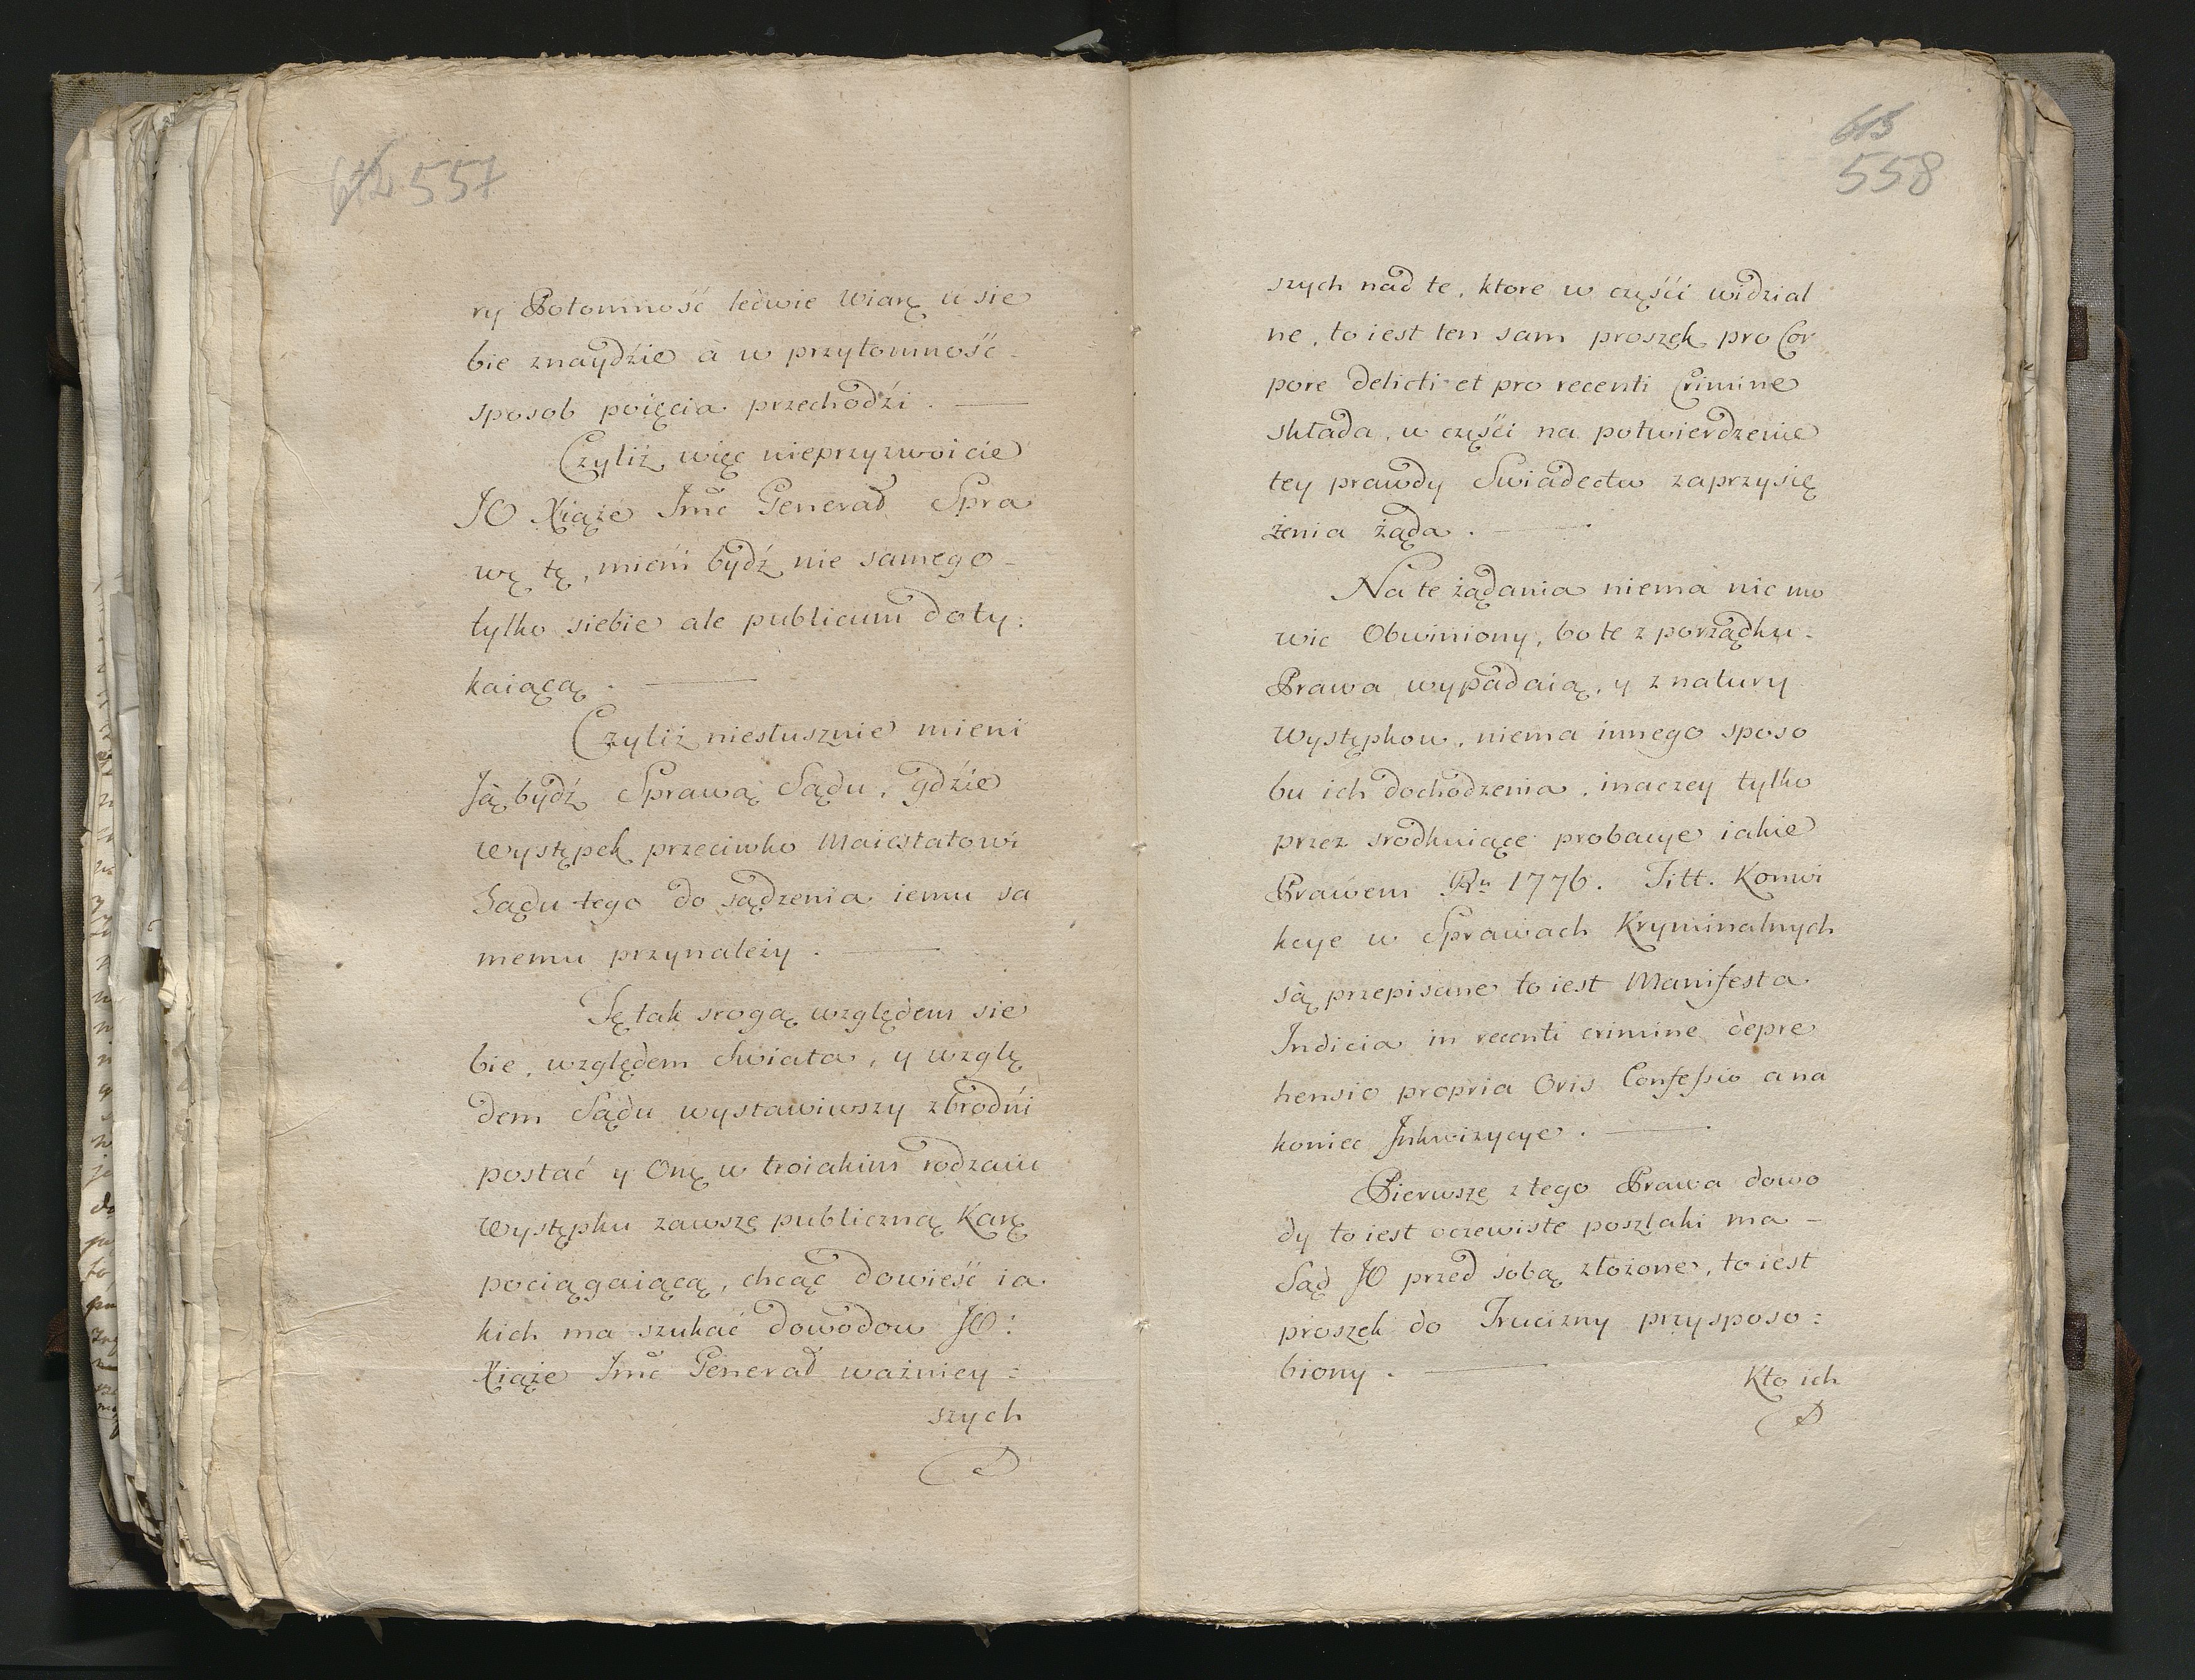 557
ry Potomność ledwie wiarę u sie
bie znaydzie à w przytomność
sposob poięcia przechodźi. —
Czyliż więc nieprzyzwoicie
JO Xiąże Jmć Generał Spra
wę tę, mieni bydź nie samego
tylko siebie ale publicum doty:
kaiącą. —
Czyliż niesłusznie mieni
Ją bydź Sprawą Sądu, gdźie
Występek przeciwko Maiestatowi
Sądu tego do sądzenia iemu sa
memu przynależy. —
Tę tak srogą względem sie
bie, względem Swiata, y wzglę
dem Sądu wystawiwszy zbrodni
postać y Onę w troiakim rodzaiu
Występku zawszę publiczną Karę
pociągaiącą, chcąc dowieść ia
kich ma szukać dowodow JO:
Xiąże Jmć Generał ważniey =
szych
615
558
szych nad te, ktore w częśći widzial
ne, to iest ten sam proszek pro Cor
pore delicti et pro recenti Crimine
składa, w częśći na potwierdzenie
tey prawdy Swiadectw zaprzysię
żenia żąda. —
Na te żądania niema nic mo
wic Obwiniony, bo te z porządku
Prawa wypadaią, y z natury
Występkow, niema innego sposo
bu ich dochodzenia, inaczey tylko
przez srodkuiące probacye iakie
Prawem Ru 1776. Titt. Konwi
kcye w Sprawach Kryminalnych
są przepisane to iest Manifesta
Indicia in recenti crimine depre
hensio propria Oris Confessio a na
koniec Inkwizycye. —
Pierwszę z tego Prawa dowo
dy to iest oczewiste poszlaki ma -
Sąd JO przed sobą złożone, to iest
proszek do Trucizny przysposo:
biony. —
Kto ich